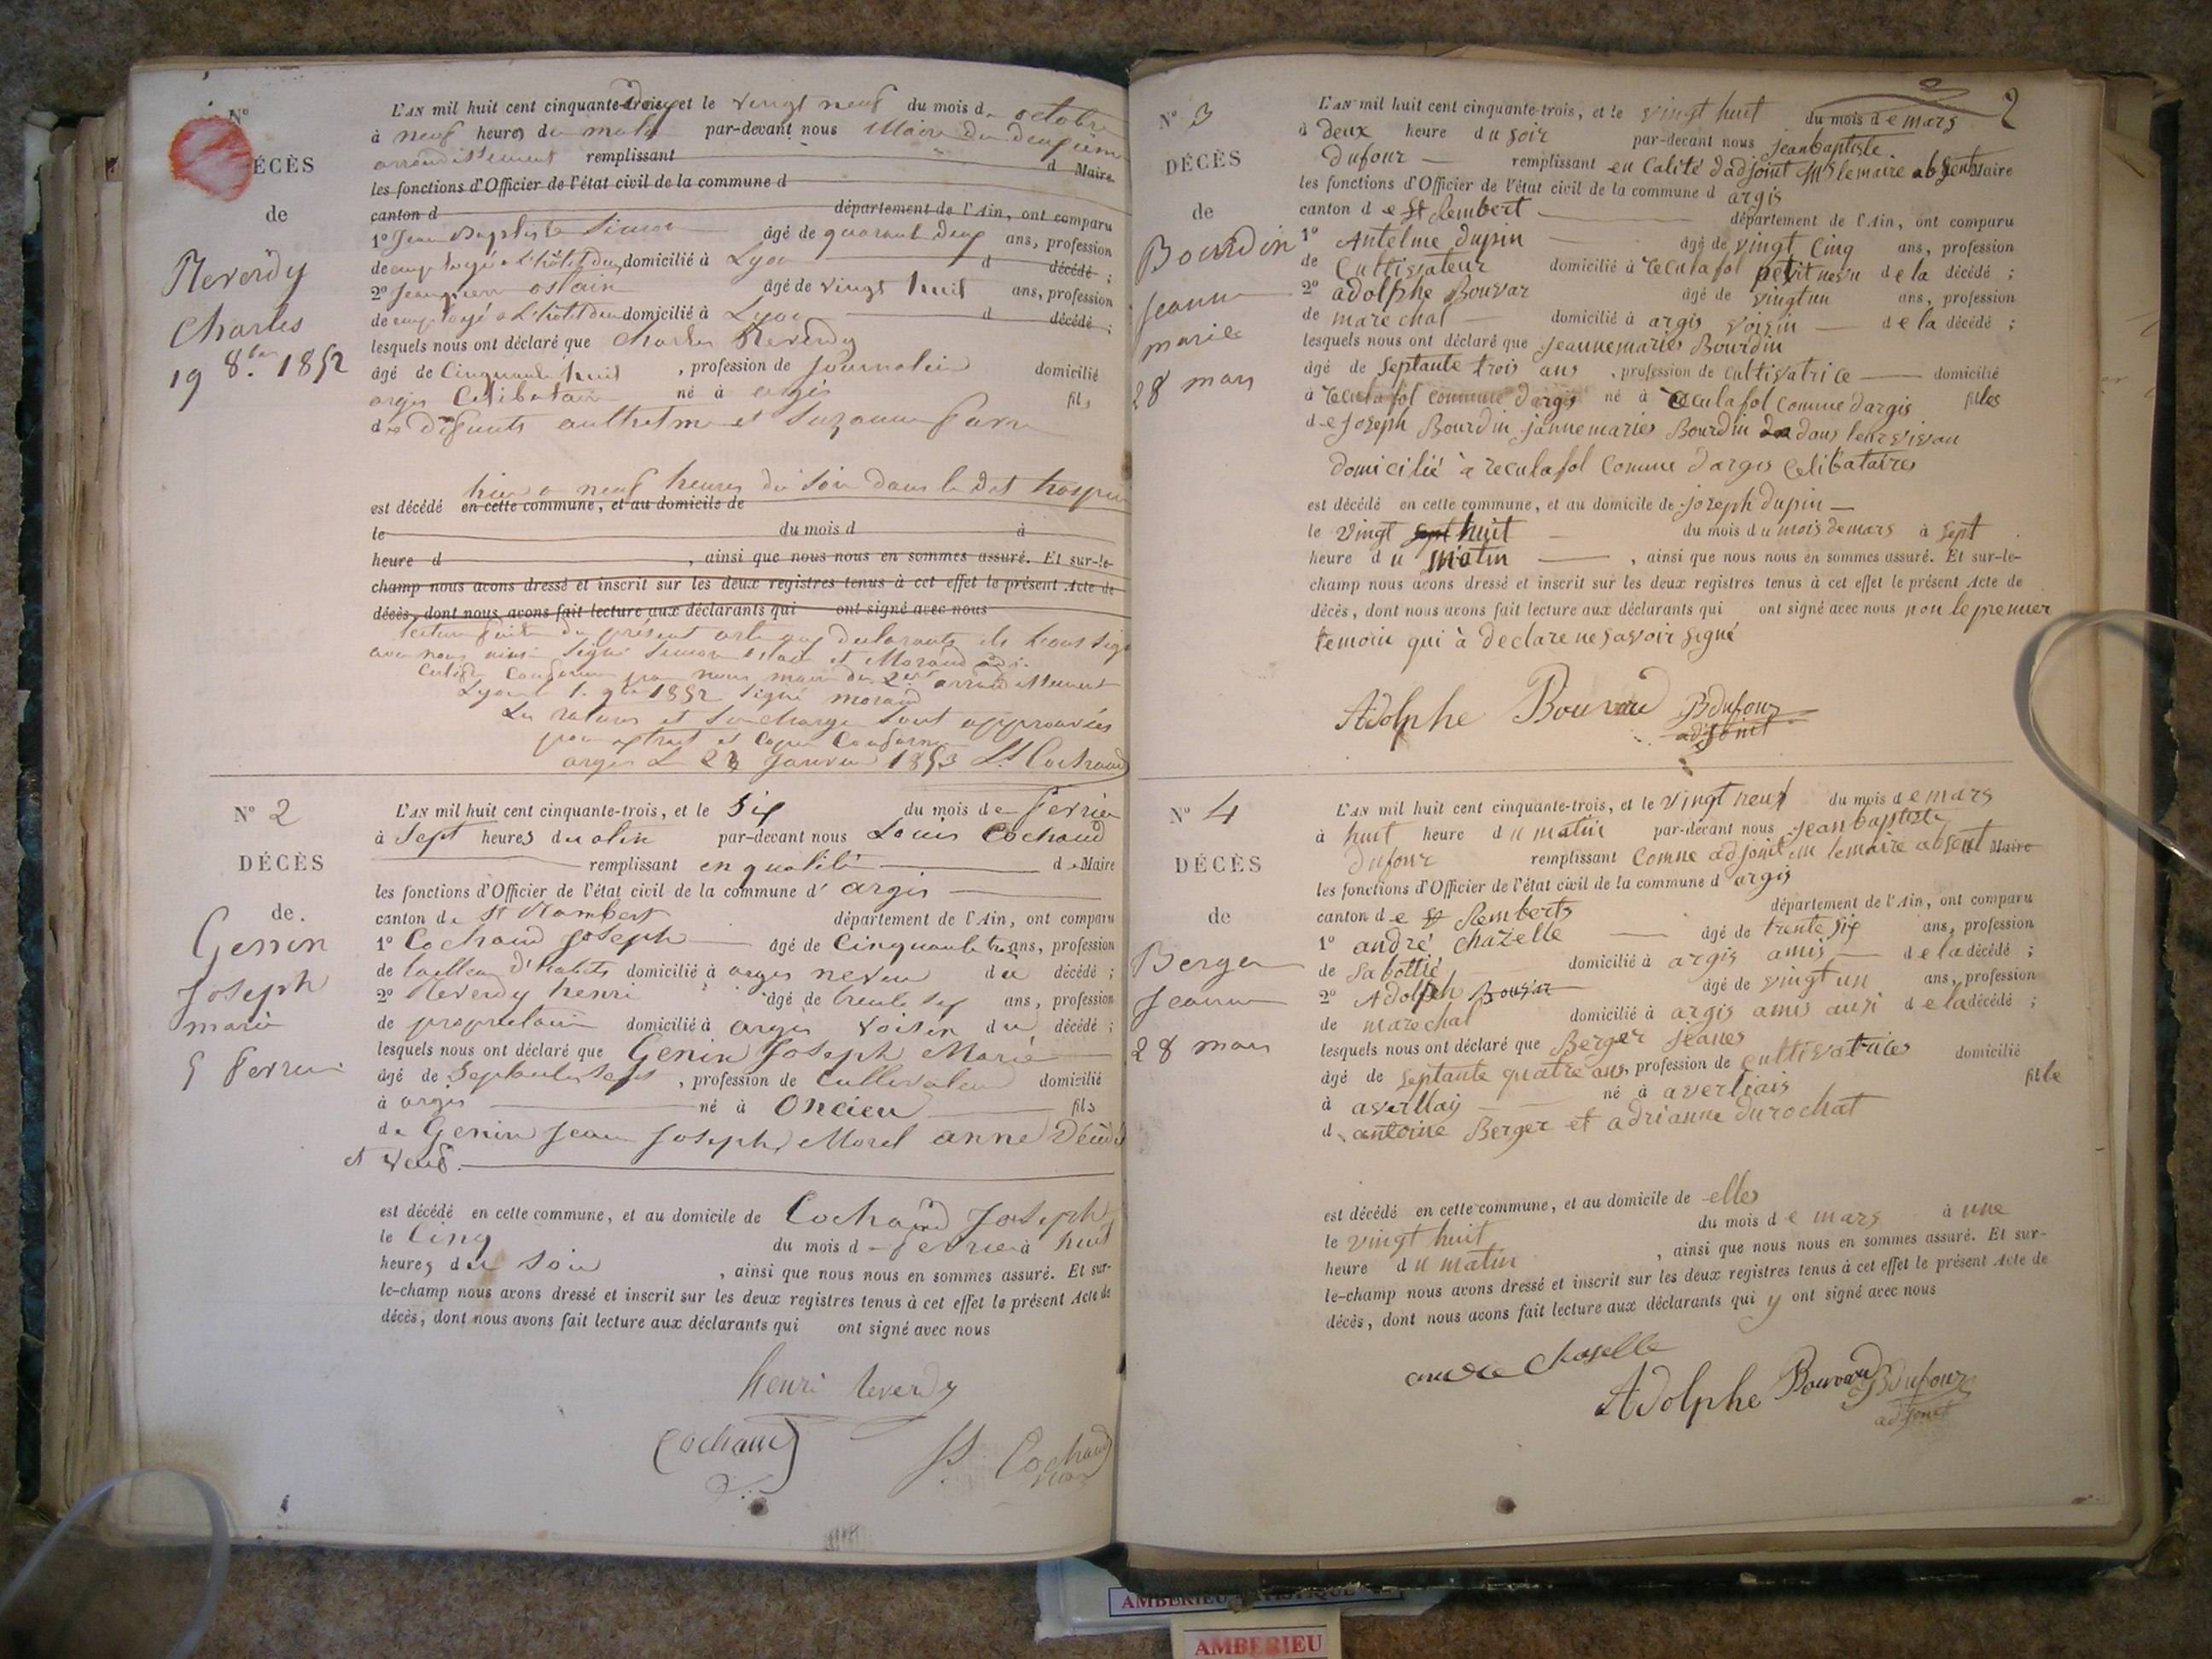 N°
DÉCÈS
de
Reverdy
Charles
19 8bre 1852
L'AN mil huit cent cinquante-deux et le vingt neuf du mois d octobre
à neuf heures du matin par-devant nous Maire du deuxième
arrondissement remplissant d Maire
les fonctions d'Officier de l'état civil de la commune d
canton d département de l'Ain, ont comparu
1° Jean Baptiste Simon âgé de quarante deux ans, profession
de employé a L'hôtel dieu domicilié à Lyon d décédé ;
2° âgé de vingt huit ans, profession
de employé a L'hôtel dieu domicilié à Lyon d décédé ;
lesquels nous ont déclaré que Charles Reverdy
âgé de Cinquante huit , profession de Journalier domicilié
argis Celibataire né à argis fils
de défunts anthelme et Suzanne
hier a neuf heures du soir dans le dit hospice
est décédé en cette commune, et au domicile de
le du mois d à
heure d , ainsi que nous nous en sommes assuré. Et sur-le-
champ nous avons dressé et inscrit sur les deux registres tenus à cet effet le présent Acte de
décès, dont nous avons fait lecture aux déclarants qui ont signé avec nous
lecture faite du présent acte aux declarants ils
avec nous ainsi Signé Simon et Morand
par nous maire du 2e arrondissement
Lyon 1. 9bre 1852 signé morand
Les ratures et Surcharge Sont approuvées
pour extrait et Copie Conforme
argis Le 23 Janvier 1853 Ls Cochaud
N° 2
DÉCÈS
de.
Genin
Joseph
marie
5 Fevrier
L'AN mil huit cent cinquante-trois, et le Six du mois de fevrier
à Sept heures du matin par-devant nous Louis Cochaud
remplissant en qualité de Maire
les fonctions d'Officier de l'état civil de la commune d' argis
canton de St Rambert département de l'Ain, ont comparu
1° Cochaud Joseph âgé de Cinquante trois ans, profession
de tailleur d'habits domicilié à argis neveu du décédé ;
2° Reverdy henri âgé de trente six ans, profession
de proprietaire domicilié à argis voisin du décédé ;
lesquels nous ont déclaré que Genin Joseph Marie
âgé de Septante Sept , profession de Cultivateur domicilié
à argis né à Oncieu fils
de Genin Jean Joseph, Morel anne Décédés
et Veuf.
est décédé en cette commune, et au domicile de Cochaud Joseph
le Cinq du mois de fevrier à huit
heures du soir , ainsi que nous nous en sommes assuré. Et sur-
le-champ nous avons dressé et inscrit sur les deux registres tenus à cet effet le présent Acte de
décès, dont nous avons fait lecture aux déclarants qui ont signé avec nous
henri Reverdy
Cochaud
Ls Cochaud
2
N° 3
DÉCÈS
de
Bourdin
Jeanne
marie
28 mars
L'AN mil huit cent cinquante-trois, et le vingt huit du mois de mars
à deux heure du soir par-devant nous jeanbaptiste
Dufour remplissant en Calité dadjoint lemaire absent Maire
les fonctions d'Officier de l'état civil de la commune d argis
canton de St Rembert département de l'Ain, ont comparu
1° Antelme dupin âgé de vingt Cinq ans, profession
de Cultivateur domicilié à reculafol petit neveu de la décédé ;
2° adolphe Bouvar âgé de vingt un ans, profession
de marechal domicilié à argis voisin de la décédé ;
lesquels nous ont déclaré que jeannemaries Bourdin
âgé de septante trois ans , profession de cultivatrice domicilié
à reculafol Commune dargis né à reculafol Comune dargis filles
de joseph Bourdin jannemaries Bourdin dans leur vivan
domicilié à reculafol Comune dargis Celibataires
est décédé en cette commune, et au domicile de joseph dupin
le vingt sept huit du mois du mois demars à sept
heure du matin , ainsi que nous nous en sommes assuré. Et sur-le-
champ nous avons dressé et inscrit sur les deux registres tenus à cet effet le présent Acte de
décès, dont nous avons fait lecture aux déclarants qui ont signé avec nous non le premier
temoin qui à declare ne savoir signé
Adolphe Bouvard BDufour
adjoint
N° 4
DÉCÈS
de
Berger
Jeanne
28 mars
L'AN mil huit cent cinquante-trois, et le vingt neuf du mois de mars
à huit heure du matin par-devant nous jeanbaptiste
Dufour remplissant Comne adjoint lemaire absent Maire
les fonctions d'Officier de l'état civil de la commune d argis
canton de St Remberts département de l'Ain, ont comparu
1° andré chazelle âgé de trente six ans, profession
de Sabottié domicilié à argis amis de la décédé ;
2° Adolpeh Bouvar âgé de vingt un ans, profession
de marechal domicilié à argis amis ausi de la décédé ;
lesquels nous ont déclaré que Berger jeanes
âgé de septante quatre ans, profession de cultivatrices domicilié
à averllais né à averliais fille
d antoine Berger et adrianne durochat
est décédé en cette commune, et au domicile de elles
le vingt huit du mois de mars à une
heure du matin , ainsi que nous nous en sommes assuré. Et sur-
le-champ nous avons dressé et inscrit sur les deux registres tenus à cet effet le présent Acte de
décès, dont nous avons fait lecture aux déclarants qui y ont signé avec nous
andre Chaselle
Adolphe Bouvard BDufour
adjoint
AMBERIEU
AMBERIEU